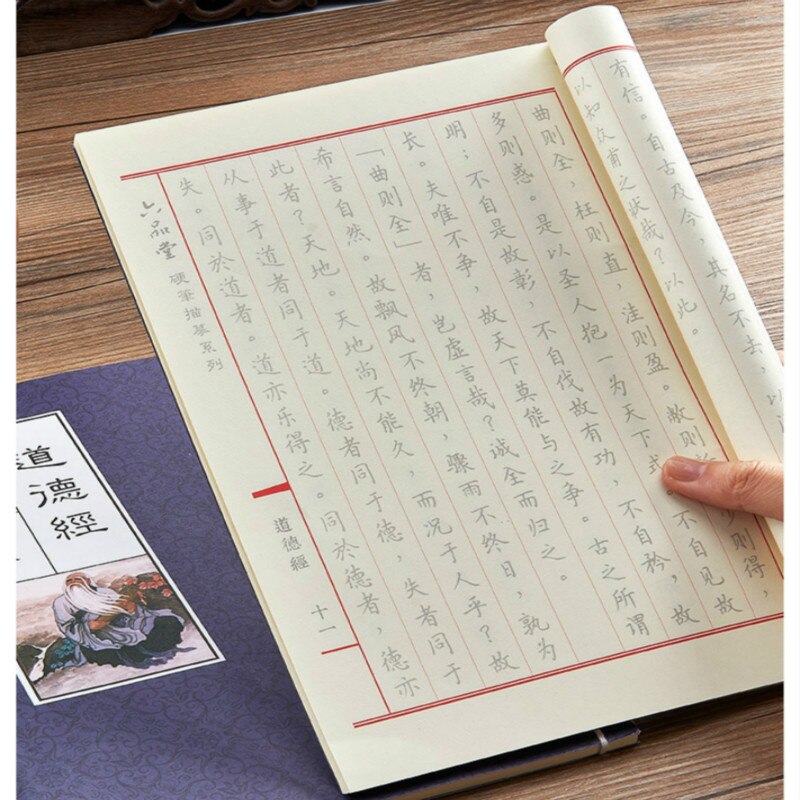 有信。自古及今，其名不去，以
以知众甫之状哉？以此。
曲则全，枉则直，洼则盈。敝则 则得，
多则惑。是以圣人抱一为天下式。不自见故
明；不自是故彰，不自伐故有功，不自矜，故
长。夫唯不争，故天下莫能与之争。古之所谓
「曲则全」者，岂虚言哉？诚全而归之。
希言自然。故飘风不终朝，骤雨不终日，孰为
此者？天地。天地尚不能久，而况于人乎？故
从事于道者同于道。德者同于德，失者同于
失。同於道者。道亦乐得之。同於德者，德亦
六品堂
硬筆描摹系列
道德經
十一
道德經